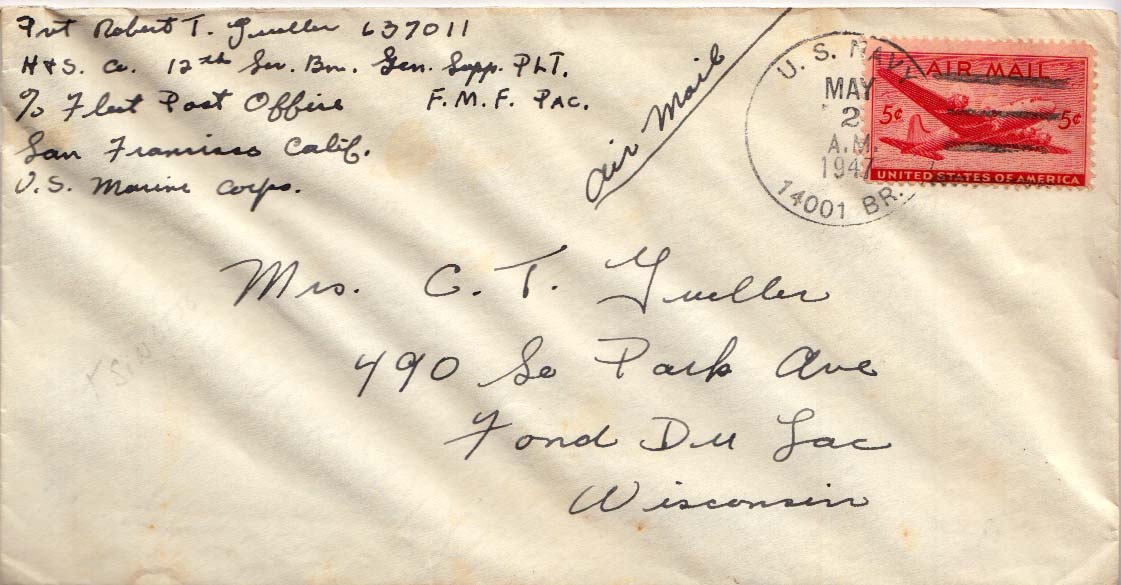 Pvt Robert T. Gueller 637011
H & S. Co. 12th Ser. Bn. Gen. Supp. PLT.
c/o Fleet Post Office F. M. F. PAC.
San Francisco Calif.
U.S. Marine Corps.
Air Mail
U. S. NAVY
MAY
2
A.M.
1947
14001 BR.
AIR MAIL
5¢ 5¢
UNITED STATES OF AMERICA
Mrs. C. T. Gueller
490 So Park Ave
Fond Du Lac
Wisconsin